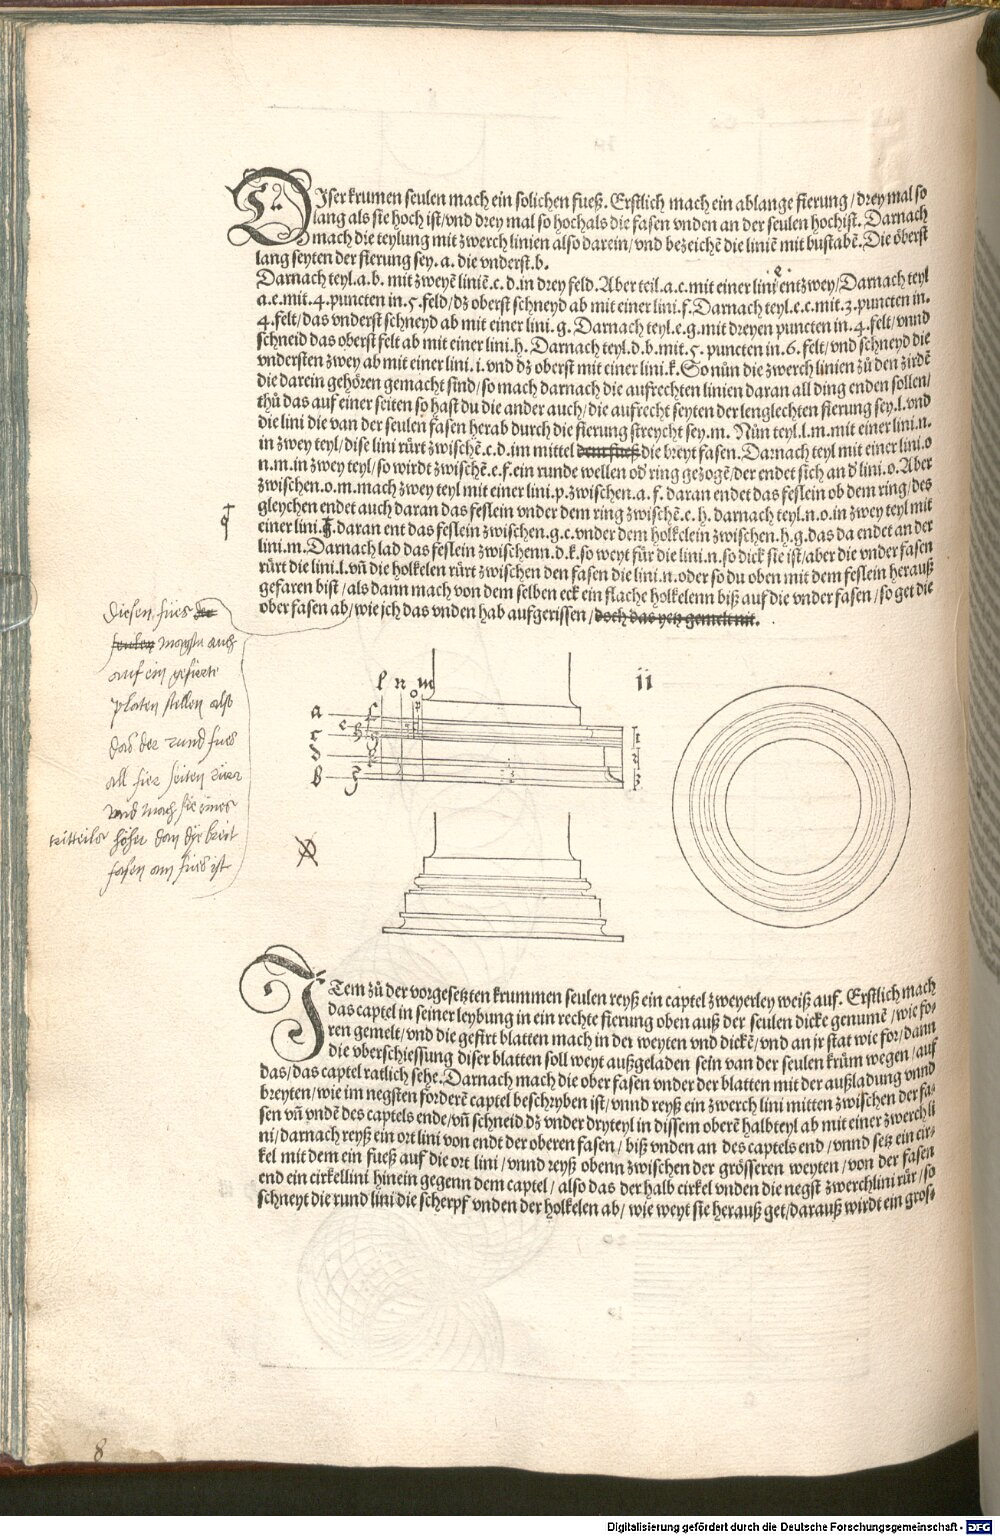 DIser krumen seulen mach ein solichen fueß. Erstlich mach ein ablange fierung / drey mal so
lang als sie hoch ist / vnd drey mal so hoch als die fasen vnden an der seulen hoch ist. Darnach
mach die teylung mit zwerch linien also darein / vnd bezeichē die liniē mit bustabē. Die öberst
lang seyten der fierung sey .a. die vnderst .b.
e.
Darnach teyl .a.b. mit zweyē liniē .c.d. in drey feld. Aber teil .a.c. mit einer lini entzwey / Darnach teyl
a.e. mit .4. puncten in .5. feld / dz oberst schneyd ab mit einer lini .f. Darnach teyl .e.c. mit .3. puncten in.
4. felt / das vnderst schneyd ab mit einer lini .g. Darnach teyl .e.g. mit dreyen puncten in .4. felt / vnnd
schneid das oberst felt ab mit einer lini .h. Darnach teyl .d.b. mit .5. puncten in .6. felt / vnd schneyd die
vndersten zwey ab mit einer lini .i. vnd dz oberst mit einer lini .k. So nün die zwerch linien zů den zirdē
die darein gehören gemacht sind / so mach darnach die aufrechten linien daran all ding enden sollen /
thů das auf einer seiten so hast du die ander auch / die aufrecht seyten der lenglechten fierung sey .l. vnd
die lini die van der seulen fasen herab durch die fierung streycht sey .m. Nůn teyl .l.m. mit einer lini .n.
in zwey teyl / dise lini rürt zwischē .c.d. im mittel dem fueß die breyt fasen. Darnach teyl mit einer lini .o
n.m. in zwey teyl / so wirdt zwischē .e.f. ein runde wellen od ring gezogē / der endet sich an d lini .o. Aber
zwischen .o.m. mach zwey teyl mit einer lini .p. zwischen .a.f. daran endet das feslein ob dem ring / des
gleychen endet auch daran das feslein vnder dem ring zwischē .e.h. darnach teyl .n.o. in zwey teyl mit
q
einer lini .q. daran ent das feslein zwischen .g.c. vnder dem holkelein zwischen .h.g. das da endet an der
lini .m. Darnach lad das feslein zwischenn .d.k. so weyt für die lini .n. so dick sie ist / aber die vnder fasen
rürt die lini .l. vñ die holkelen rürt zwischen den fasen die lini .n. oder so du oben mit dem feslein herauß
gefaren bist / als dann mach von dem selben eck ein flache holkelenn biß auf die vnder fasen / so get die
ober fasen ab / wie jch das vnden hab aufgerissen / doch das yetz gemelt nit.
diesen fües der
seulen magstu auch
auf ein gefierte
platen stellen also
das der rund fues
all fier seiten rürr
vnd mach sie eines
tritteils höher dan dye breit
fasen am fües ist
l n m
o
p
a
f
e
h
c
g
d
k
b
i
11
1
2
3
ITem zů der vorgesetzten krummen seulen reyß ein captel zweyerley weiß auf. Erstlich mach
das captel in seiner leybung in ein rechte fierung oben auß der seulen dicke genumē / wie fo-
ren gemelt / vnd die gefirt blatten mach in der weyten vnd dickē / vnd an jr stat wie for / dann
die vberschiessung diser blatten soll weyt außgeladen sein van der seulen krüm wegen / auf
das / das captel ratlich sehe. Darnach mach die ober fasen vnder der blatten mit der außladung vnnd
breyten / wie im negsten förderē captel beschryben ist / vnnd reyß ein zwerch lini mitten zwischen der fa-
sen vñ vndē des captels ende / vñ schneid dz vnder dryteyl in dissem oberē halbteyl ab mit einer zwerch li
ni / darnach reyß ein ort lini von endt der oberen fasen / biß vnden an des captels end / vnnd setz ein cir-
kel mit dem ein fueß auf die ort lini / vnnd reyß obenn zwischen der grösseren weyten / von der fasen
end ein cirkellini hinein gegenn dem captel / also das der halb cirkel vnden die negst zwerchlini rür / so
schneyt die rund lini die scherpf vnden der holkelen ab / wie weyt sie herauß get / darauß wirdt ein gros-
8
Digitalisierung gefördert durch die Deutsche Forschungsgemeinschaft - DFG